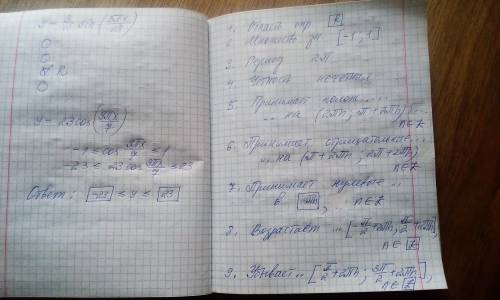 y = 23cos(3πx/7)
-1 ≤ cos 3πx/7 ≤ 1
-23 ≤ 23cos 3πx/7 ≤ 23
Ответ: -23 ≤ y ≤ 23
1. Область опр R
2. Множество зн [-1; 1]
3. Период 2π
4. Четность нечетная
5. Принимает полож...
.. на (2πn; π+2πn),
n∈Z
6. Принимает отрицательные...
.. на (π+2πn; 2π+2πn)
n∈Z
7. Принимает нулевые ..
в πn, n∈Z
8. Возрастает .. [-π/2+2πn; π/2+2πn],
n∈Z
9. Убывает .. [π/2+2πn; 3π/2+2πn],
n∈Z